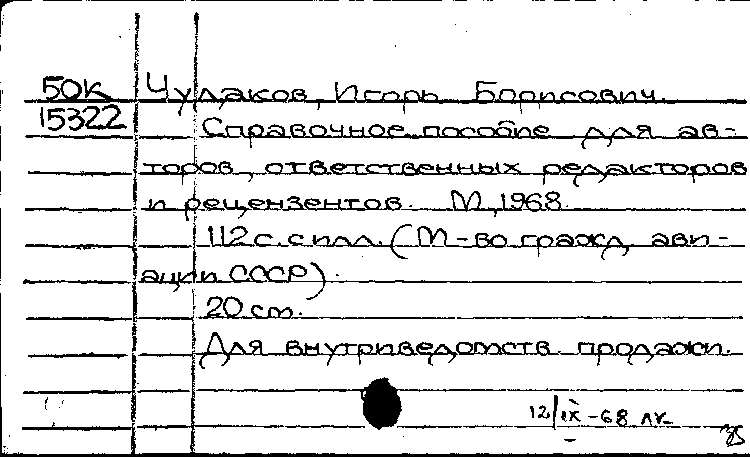 50К Чудаков, Игорь Борисович.
15322 Справочное пособие для ав-
торов, ответственных редакторов
и рецензентов. М, 1968.
112 с. с илл. (М-во гражд, ави-
ации СССР).
20 см.
Для внутриведомств. продажи.
12/IX-68 лк